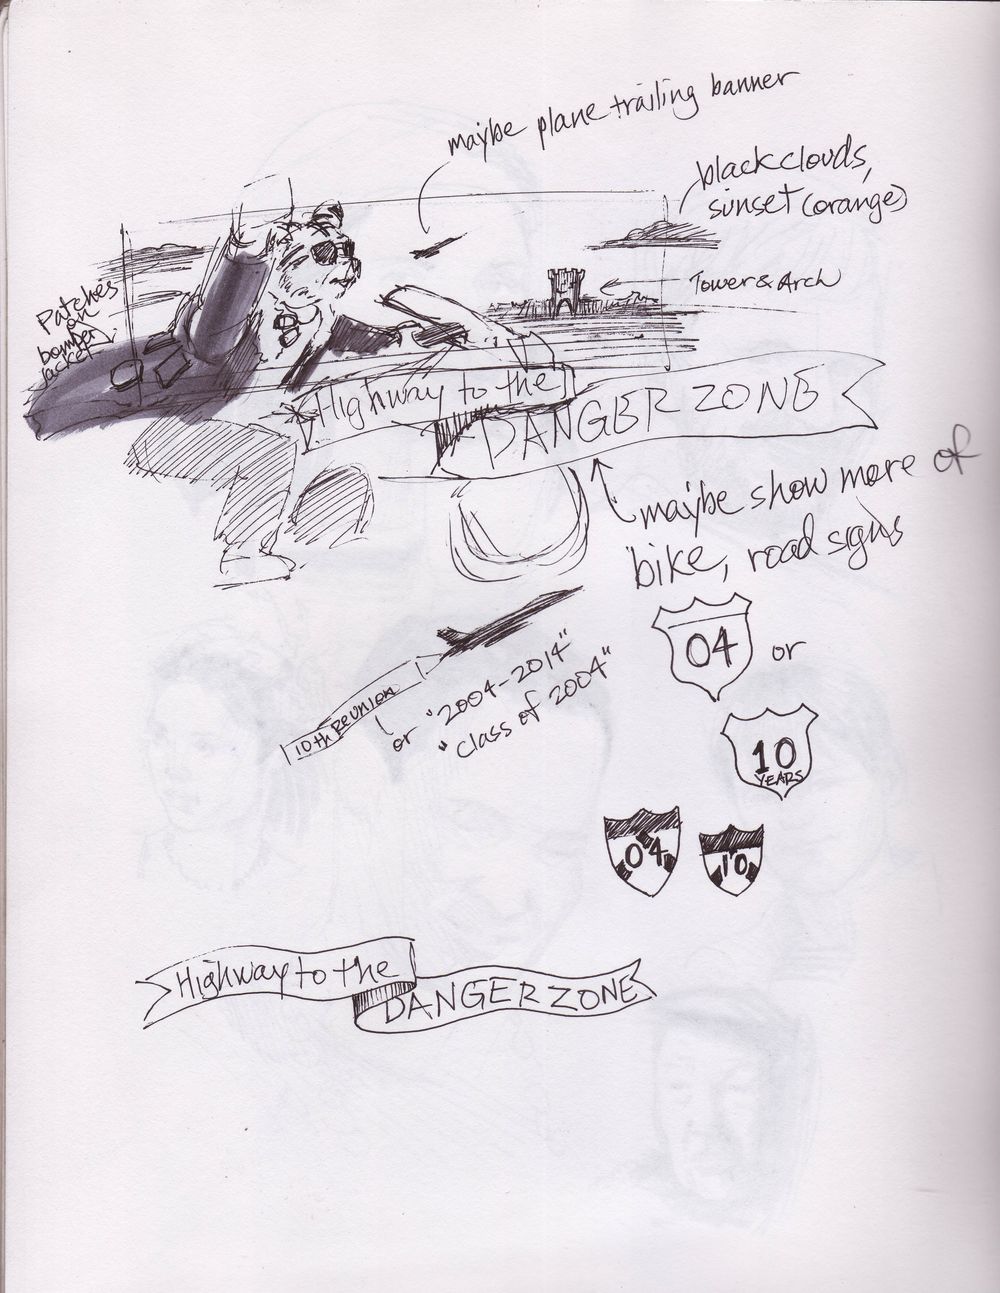 maybe plane trailing banner
black clouds,
sunset (orange)
Patches
on
bomber
jacket
Tower & Arch
Highway to the
DANGER ZONE
maybe show more of
bike, road signs
10th Reunion
or "2004-2014"
"class of 2004"
04
or
10
YEARS
04
10
Highway to the
DANGER ZONE